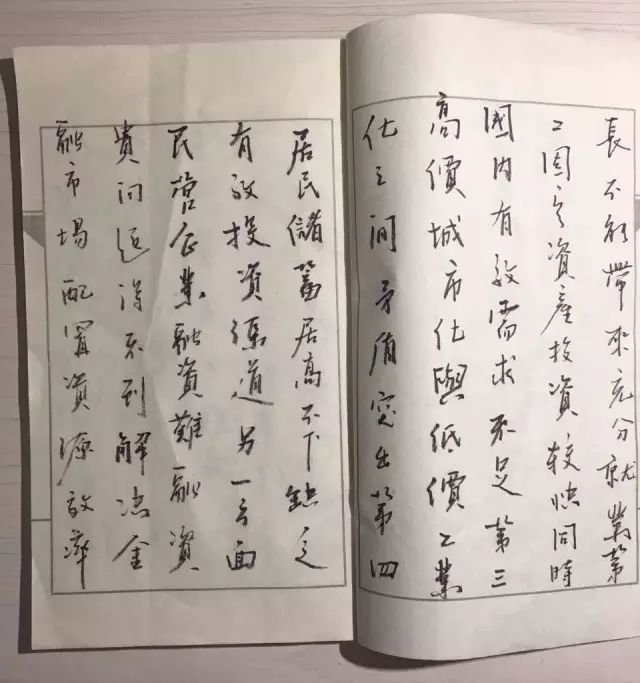 長不能帶來充分就業第
二固定資產投資較快同時
國内有效需求不足第三
高價城市化與低價工業
化之間矛盾突出第四
居民儲蓄居高不下缺乏
有效投資渠道另一方面
民營企業融資難融資
貴问题得不到解决金
融市場配置資源效率